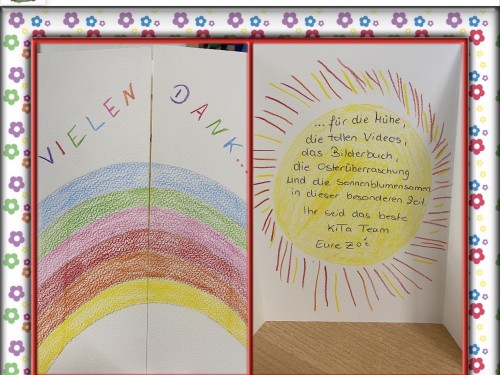 VIELEN DANK...
... für die Mühe,
die tollen Videos,
das Bilderbuch,
die Osterüberraschung
und die Sonnenblumensamen
in dieser besonderen Zeit.
Ihr seid das beste
KiTa Team
Eure Zoé